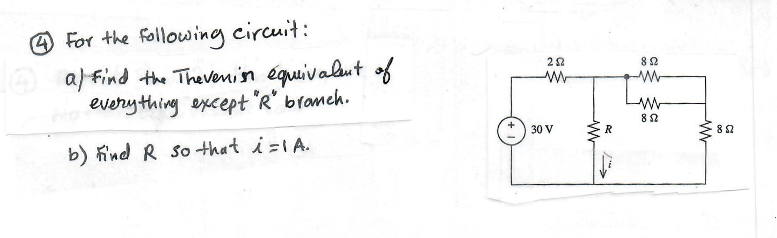 ④ For the following circuit:
a) Find the Thevenin equivalent of
everything except "R" branch.
b) Find R so that i = 1 A.
2 Ω
8 Ω
8 Ω
+
-
30 V
R
i
8 Ω